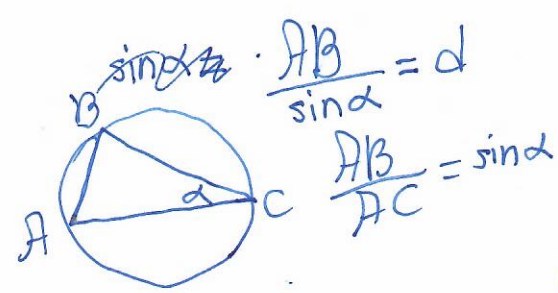 sinα
AB/sinα = d
B
AB/AC = sinα
α
C
A